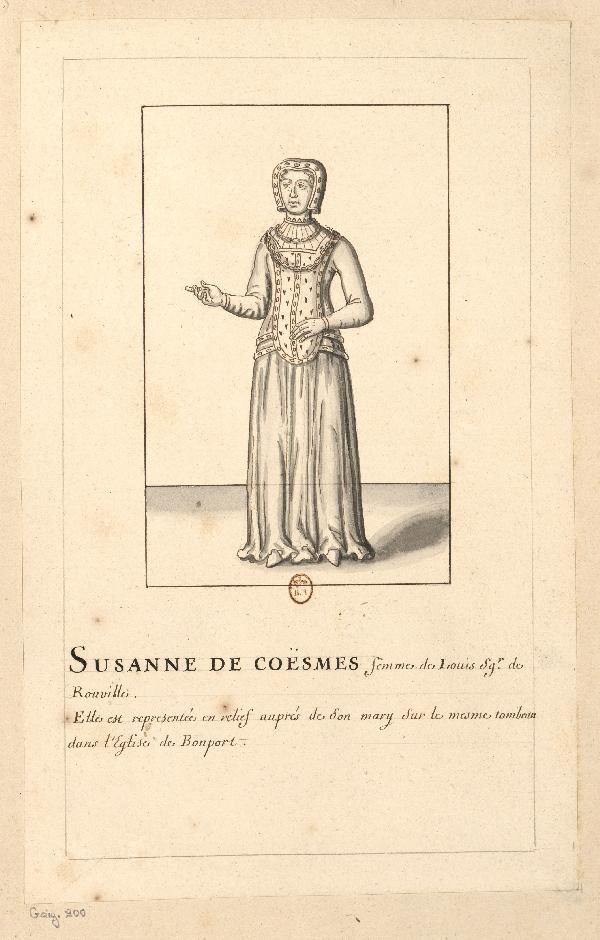 B.R
SUSANNE DE COËSMES femme de Louis Sgr. de
Rouville.
Elle est representée en relief auprés de son mary sur le mesme tombeau
dans l'Eglise de Bonport.
Gaig. 200